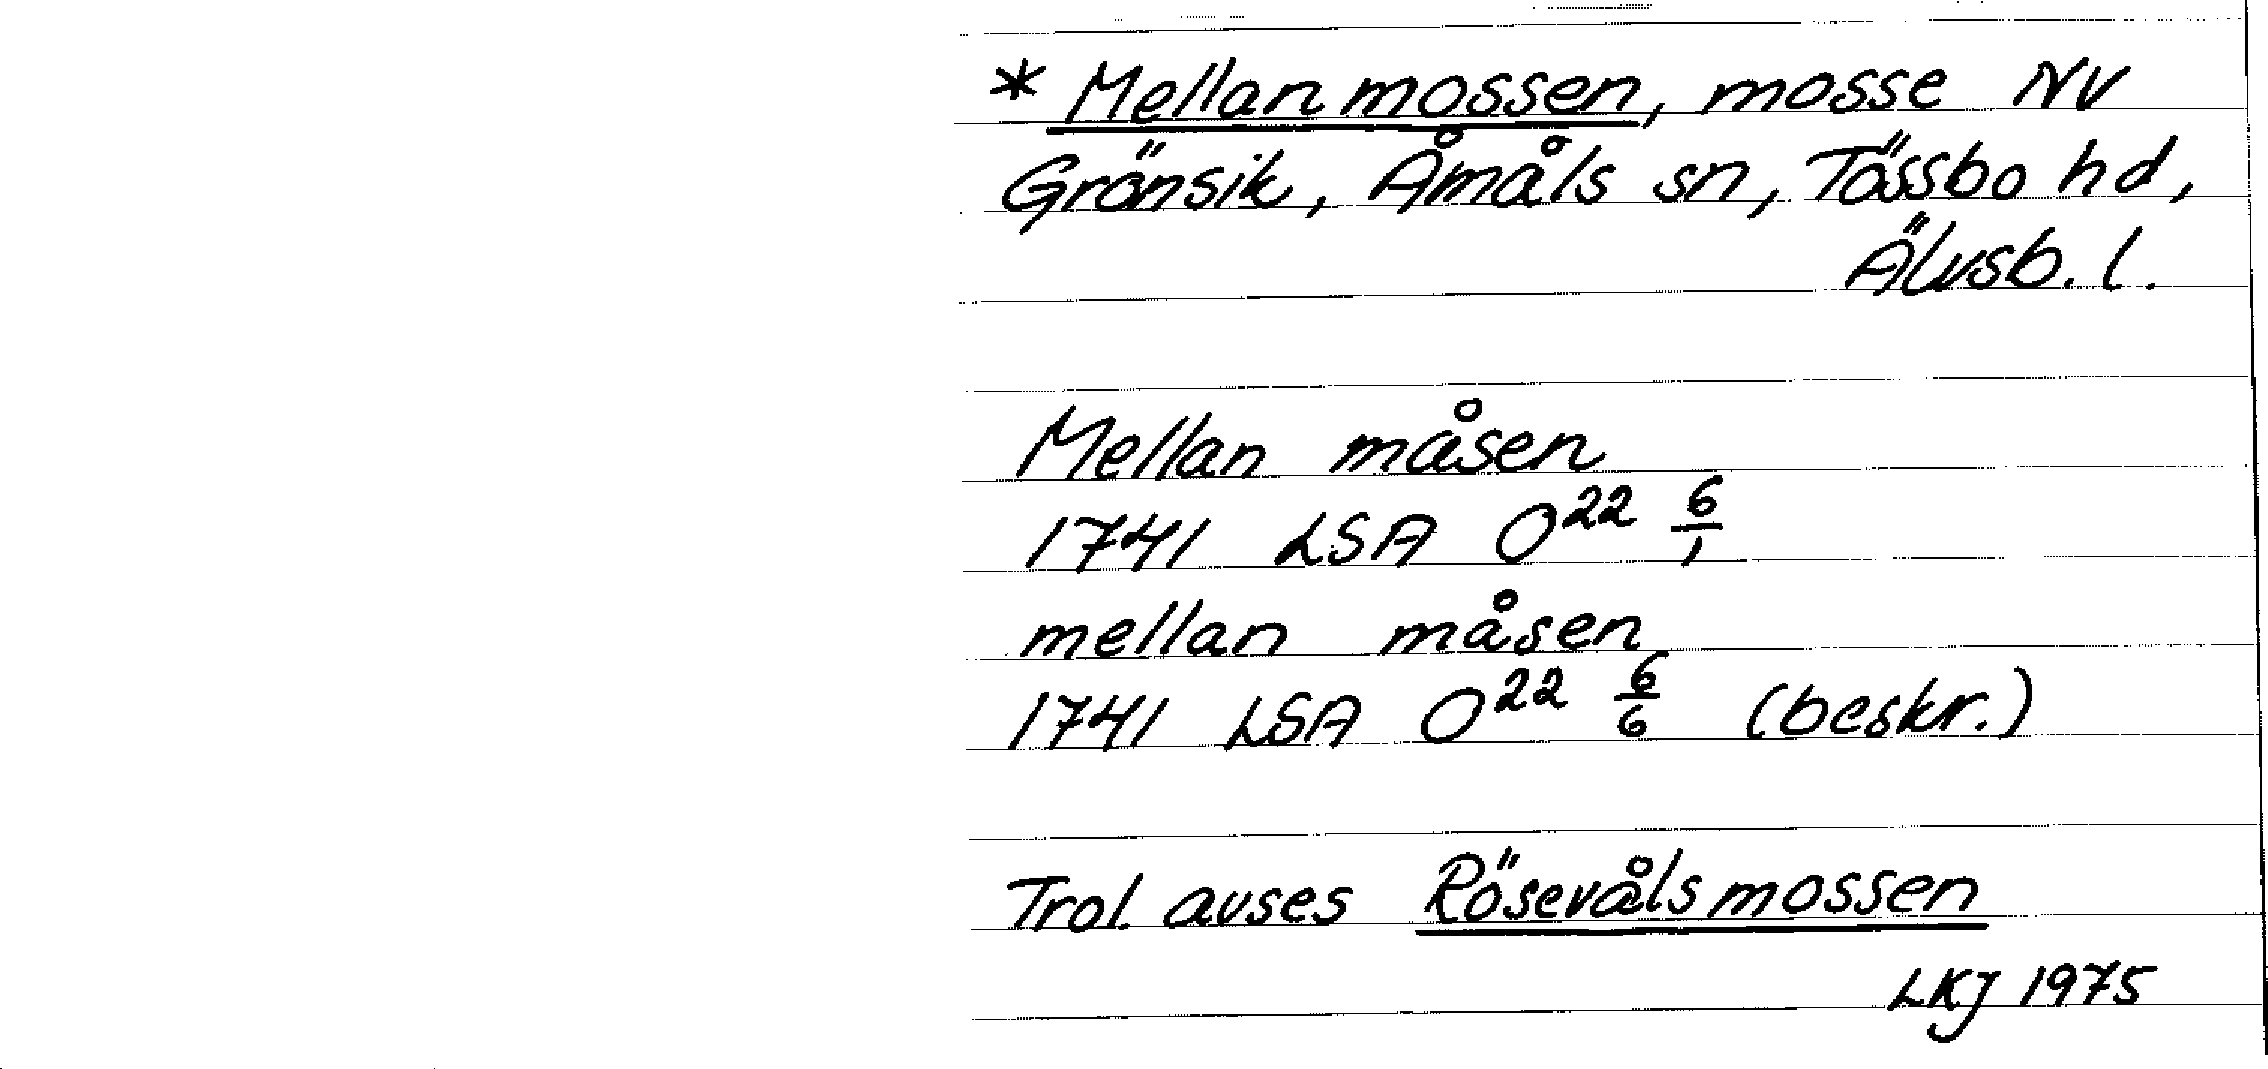 * Mellanmossen, mosse NV
Grönsik, Åmåls sn, Tössbo hd,
Älvsb. l.
Mellan måsen
1741 LSA O²² 6/1
mellan måsen
1741 LSA O²² 6/6 (beskr.)
Trol. avses Rösevålsmossen
LKJ 1975